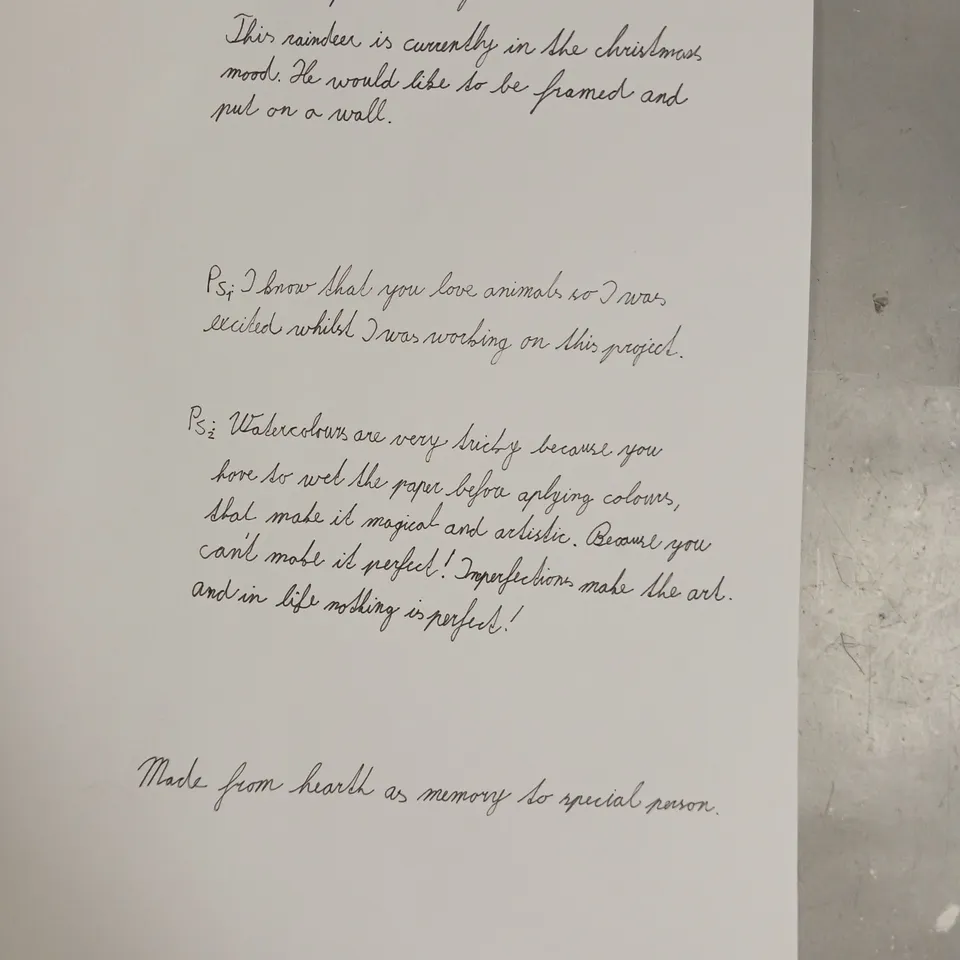 This raindeer is currently in the christmass
mood. He would like to be framed and
put on a wall.
Ps;1 I know that you love animals so I was
excited whilst I was working on this project.
Ps;2 Watercolours are very tricky because you
have to wet the paper before aplying colours,
that make it magical and artistic. Because you
can't make it perfect! Imperfections make the art.
and in life nothing is perfect!
Made from hearth as memory to special person.